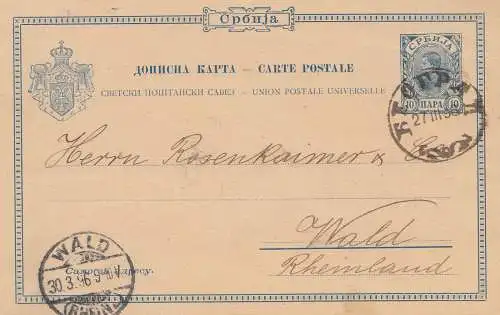 Србија
СРБИЈА
ДОПИСНА КАРТА – CARTE POSTALE
СВЕТСКИ ПОШТАНСКИ САВЕЗ – UNION POSTALE UNIVERSELLE
10 ПАРА 10
27 III 96
Herrn Rosenkaimer &
Wald
Rheinland
WALD
30.3.96
(RHEINL)
Само за адресу.